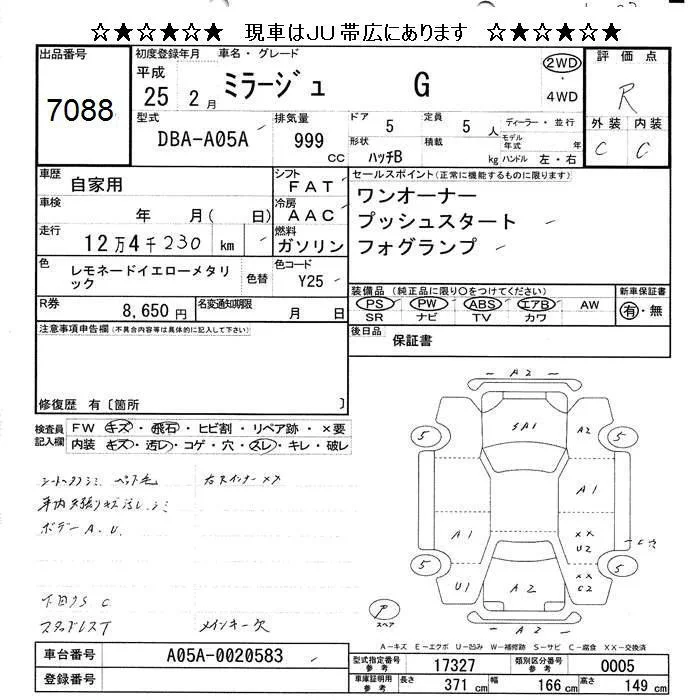 ☆★☆★☆★ 現車はJU帯広にあります ☆★☆★☆★
出品番号
7088
初度登録年月 車名・グレード
平成
25 2月 ミラージュ G
2WD
4WD
評価点
R
外装 内装
C C
型式
DBA-A05A
排気量
999
CC
ドア 5
定員 5 人
ディーラー・並行
形状 ハッチB
積載 kg
モデル年式 年
ハンドル 左・右
車歴 自家用
シフト FAT
車検 年 月( 日)
冷房 AAC
走行 12万4千230 km
燃料 ガソリン
色 レモネードイエローメタリック
色替
色コード Y25
R券 8,650円
名変通知期限 月 日
セールスポイント(正常に機能するものに限ります)
ワンオーナー
プッシュスタート
フォグランプ
装備品 (純正品に限り○をつけてください)
PS PW ABS エアB AW
SR ナビ TV カワ
新車保証書
有・無
後日品 保証書
注意事項申告欄(不具合内容等は具体的に記入して下さい)
修復歴 有〔箇所 〕
検査員記入欄
FW キズ・飛石・ヒビ割・リペア跡・×要
内装 キズ・汚レ・コゲ・穴・スレ・キレ・破レ
ボデー A.U.
下回りS C
スタッドレスT
メインキー欠
A2
SA1
A2
5
5
A1
A1
××
U2
××
C2
5
5
U1
A2
A2
スペア
A-キズ E-エクボ U-凹み W-補修跡 S-サビ C-腐食 XX-交換済
車台番号 A05A-0020583
登録番号
型式指定番号参考 17327
類別区分番号参考 0005
車庫証明用参考
長さ 371 cm
幅 166 cm
高さ 149 cm